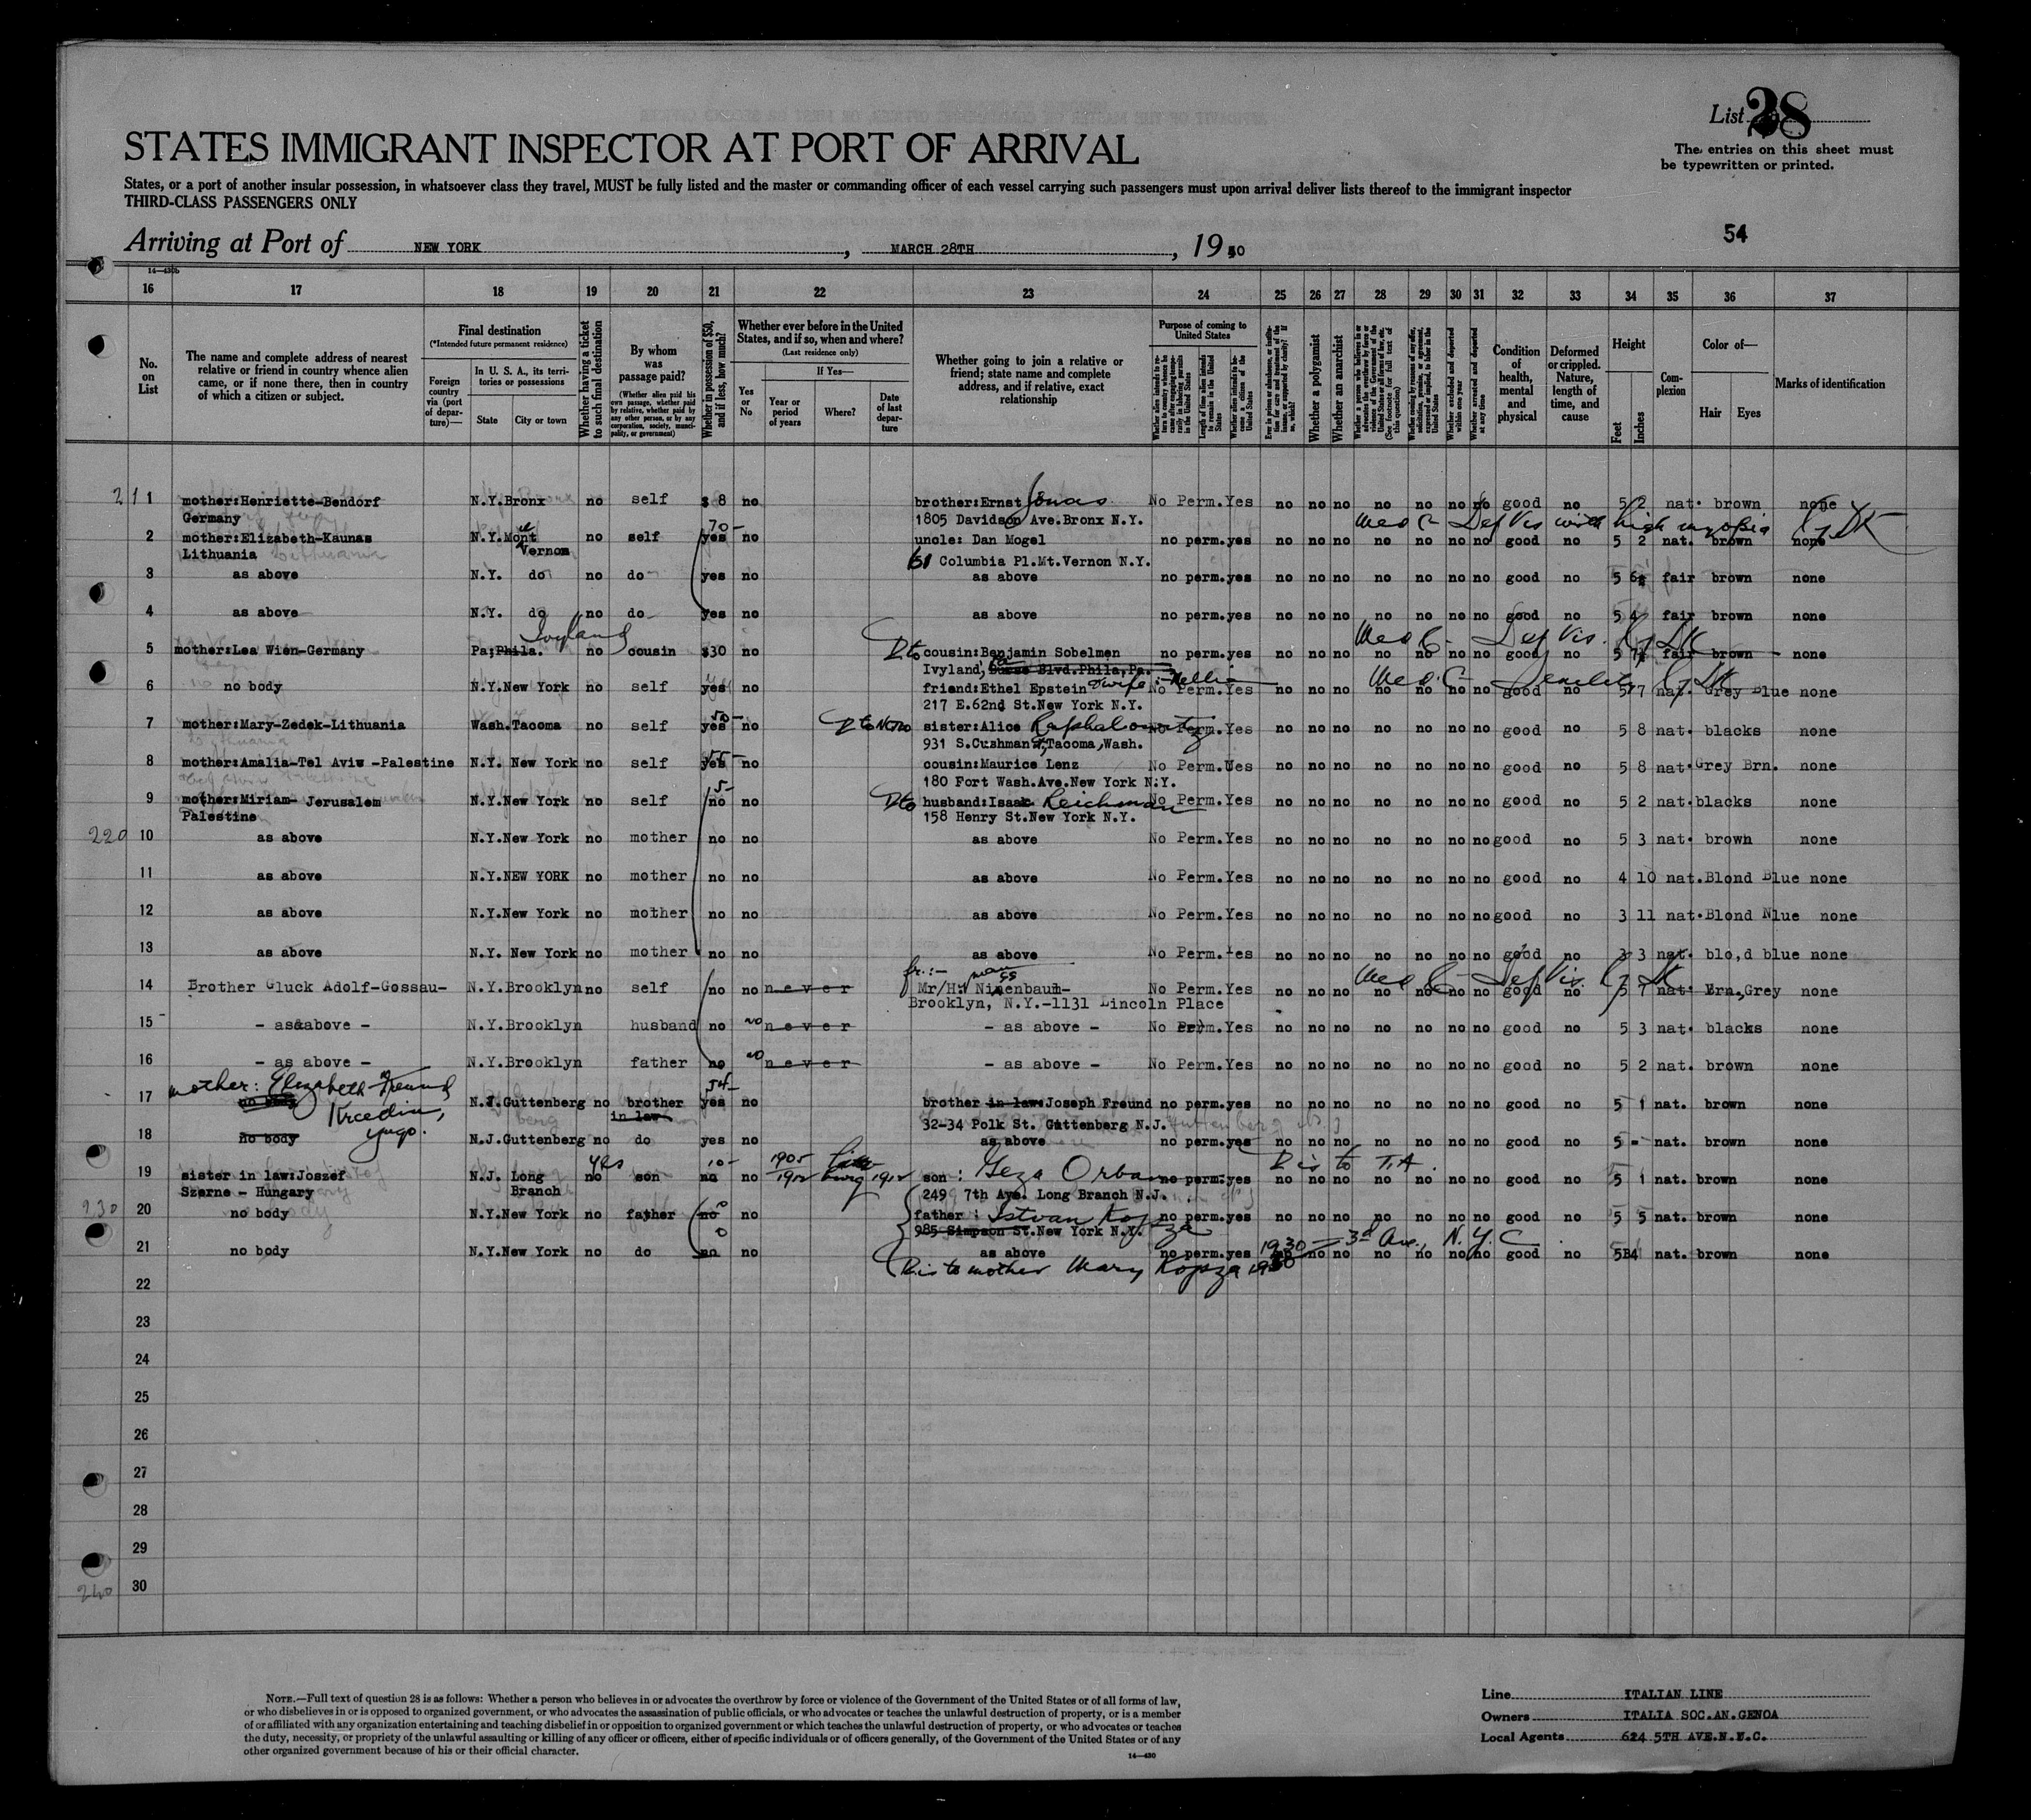 List 28
The entries on this sheet must
be typewritten or printed.
STATES IMMIGRANT INSPECTOR AT PORT OF ARRIVAL
States, or a port of another insular possession, in whatsoever class they travel, MUST be fully listed and the master or commanding officer of each vessel carrying such passengers must upon arrival deliver lists thereof to the immigrant inspector
THIRD-CLASS PASSENGERS ONLY
54
Arriving at Port of NEW YORK, MARCH 28TH, 1940
14—430b
16 17 18 19 20 21 22 23 24 25 26 27 28 29 30 31 32 33 34 35 36 37
No. on List
The name and complete address of nearest relative or friend in country whence alien came, or if none there, then in country of which a citizen or subject.
Final destination
(*Intended future permanent residence)
Foreign country via (port of departure)—
In U. S. A., its territories or possessions
State City or town
Whether having a ticket to such final destination
By whom was passage paid?
(Whether alien paid his own passage, whether paid by relative, whether paid by any other person, or by any corporation, society, municipality, or government)
Whether in possession of $50, and if less, how much?
Whether ever before in the United States, and if so, when and where?
(Last residence only)
Yes or No
If Yes—
Year or period of years
Where?
Date of last departure
Whether going to join a relative or friend; state name and complete address, and if relative, exact relationship
Purpose of coming to United States
Whether a polygamist
Whether an anarchist
Condition of health, mental and physical
Deformed or crippled. Nature, length of time, and cause
Height
Feet Inches
Complexion
Color of—
Hair Eyes
Marks of identification
21 1 mother:Henriette-Bendorf N.Y.Bronx no self $ 8 no brother:Ernst Jonas No Perm.Yes no no no no no no no good no 5 2 nat. brown none
Germany 1805 Davidson Ave.Bronx N.Y.
70- Med C- Def Vis with high myopia
2 mother:Elizabeth-Kaunas N.Y.Mont no self yes no uncle: Dan Mogel no perm.yes no no no no no no no good no 5 2 nat. brown none
Lithuania Vernon 61 Columbia Pl.Mt.Vernon N.Y.
3 as above N.Y. do no do yes no as above no perm.yes no no no no no no no good no 5 6½ fair brown none
4 as above N.Y. do no do yes no as above no perm.yes no no no no no no no good no 5 4 fair brown none
Ivyland Med C- Def Vis.
5 mother:Lea Wien-Germany Pa;Phila. no cousin $30 no D to cousin:Benjamin Sobelmen no perm.yes no no no no no no no good no 5 7½ fair brown none
Ivyland, Pa Blvd.Phila,Pa.
Med. C- Senility
6 no body N.Y.New York no self yes no friend:Ethel Epstein No Perm.Yes no no no no no no no good no 5 7 nat. Grey Blue none
217 E.62nd St.New York N.Y.
50-
7 mother:Mary-Zedek-Lithuania Wash.Tacoma no self yes no sister:Alice Raphalowitz No Perm.Yes no no no no no no no good no 5 8 nat. blacks none
931 S.Cushman St,Tacoma,Wash.
55-
8 mother:Amalia-Tel Aviv -Palestine N.Y. New York no self yes no cousin:Maurice Lenz No Perm.Ues no no no no no no no good no 5 8 nat.Grey Brn. none
180 Fort Wash.Ave.New York N.Y.
5-
9 mother:Miriam- Jerusalem N.Y.New York no self no no D to husband:Isaac Reichman No Perm.Yes no no no no no no no good no 5 2 nat.blacks none
Palestine 158 Henry St.New York N.Y.
220 10 as above N.Y.New York no mother no no as above No Perm.Yes no no no no no no no good no 5 3 nat. brown none
11 as above N.Y.NEW YORK no mother no no as above No Perm.Yes no no no no no no no good no 4 10 nat.Blond Blue none
12 as above N.Y.New York no mother no no as above No Perm.Yes no no no no no no no good no 3 11 nat.Blond Nlue none
13 as above N.Y. New York no mother no no as above No Perm.Yes no no no no no no no good no 3 3 nat. blo,d blue none
fr.:- Med C- Def Vis.
14 Brother Gluck Adolf-Gossau- N.Y.Brooklyn no self no no never Mr/H. Nissenbaum- No Perm.Yes no no no no no no no good no 5 7 nat. Brn.,Grey none
Brooklyn, N.Y.-1131 Lincoln Place
15 - as above - N.Y.Brooklyn husband no no never - as above - No Perm.Yes no no no no no no no good no 5 3 nat. blacks none
16 - as above - N.Y.Brooklyn father no no never - as above - No Perm.Yes no no no no no no no good no 5 2 nat. brown none
mother: Elizabeth Freund
17 no body N.J.Guttenberg no brother yes no brother in law:Joseph Freund no perm.yes no no no no no no no good no 5 1 nat. brown none
in law 32-34 Polk St. Guttenberg N.J.
Yugo.
18 no body N.J.Guttenberg no do yes no as above no perm.yes no no no no no no no good no 5 - nat. brown none
yes 10- 1905 Dis to T.A.
19 sister in law:Joszef N.J. Long no son no no son: Geza Orban no perm.yes no no no no no no no good no 5 1 nat. brown none
Szerne - Hungary Branch 249 7th Ave. Long Branch N.J.
230 20 no body N.Y.New York no father no no father: Istvan Kopza no perm.yes no no no no no no no good no 5 5 nat. brown none
985 Simpson St.New York N.Y.
1930 - 3rd Ave., N.Y.C.
21 no body N.Y.New York no do no no as above no perm.yes no no no no no no no good no 5B4 nat. brown none
Dis to mother Mary Kopza 1930
22
23
24
25
26
27
28
29
240 30
NOTE.—Full text of question 28 is as follows: Whether a person who believes in or advocates the overthrow by force or violence of the Government of the United States or of all forms of law,
or who disbelieves in or is opposed to organized government, or who advocates the assassination of public officials, or who advocates or teaches the unlawful destruction of property, or is a member
of or affiliated with any organization entertaining and teaching disbelief in or opposition to organized government or which teaches the unlawful destruction of property, or who advocates or teaches
the duty, necessity, or propriety of the unlawful assaulting or killing of any officer or officers, either of specific individuals or of officers generally, of the Government of the United States or of any
other organized government because of his or their official character.
14—430
Line ITALIAN LINE
Owners ITALIA SOC.AN.GENOA
Local Agents 624 5TH AVE.N.Y.C.